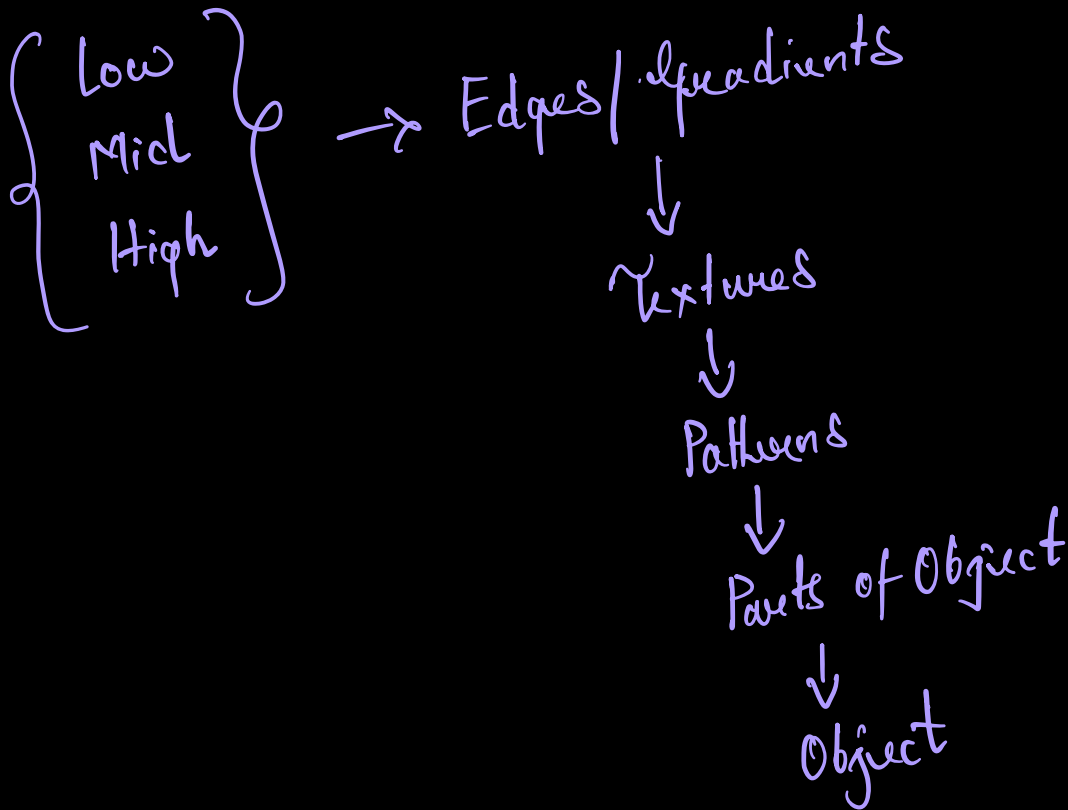 Low
Mid
High
→ Edges/Gradients
↓
Textures
↓
Patterns
↓
Parts of Object
↓
Object